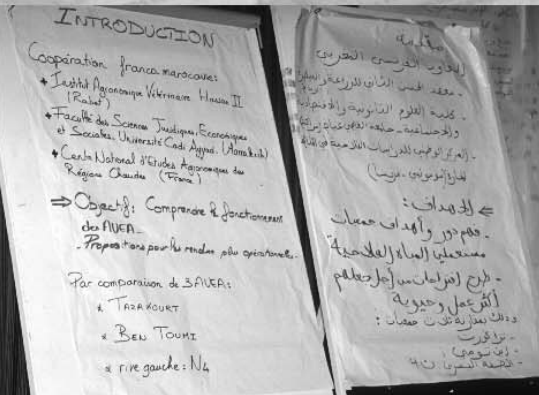 INTRODUCTION
Coopération franco marocaine:
+ Institut Agronomique Vétérinaire Hassan II
(Rabat)
+ Faculté des Sciences Juridiques, Economiques
et Sociales. Université Cadi Ayyad. (Marrakech)
+ Centre National d'Etudes Agronomiques des
Régions Chaudes (France)
⇒ Objectif: Comprendre le fonctionnement
des AUEA.
- Propositions pour les rendre plus opérationnelles.
Par comparaison de 3 AUEA:
* TAZAKOURT
* BEN TOUMI
* rive gauche: N4
مقدمة
التعاون الفرنسي المغربي
- معهد الحسن الثاني للزراعة والبيطرة
- كلية العلوم القانونية والاقتصادية
والاجتماعية - جامعة القاضي عياض
- المركز الوطني للدراسات الفلاحية
⇐ الأهداف:
- فهم دور وأهداف جمعيات
مستعملي المياه الفلاحية
- طرح اقتراحات من أجل جعلهم
أكثر عمل وحيوية
وذلك بمقارنة ثلاث جمعيات:
- تزاكورت
- ابن تومي